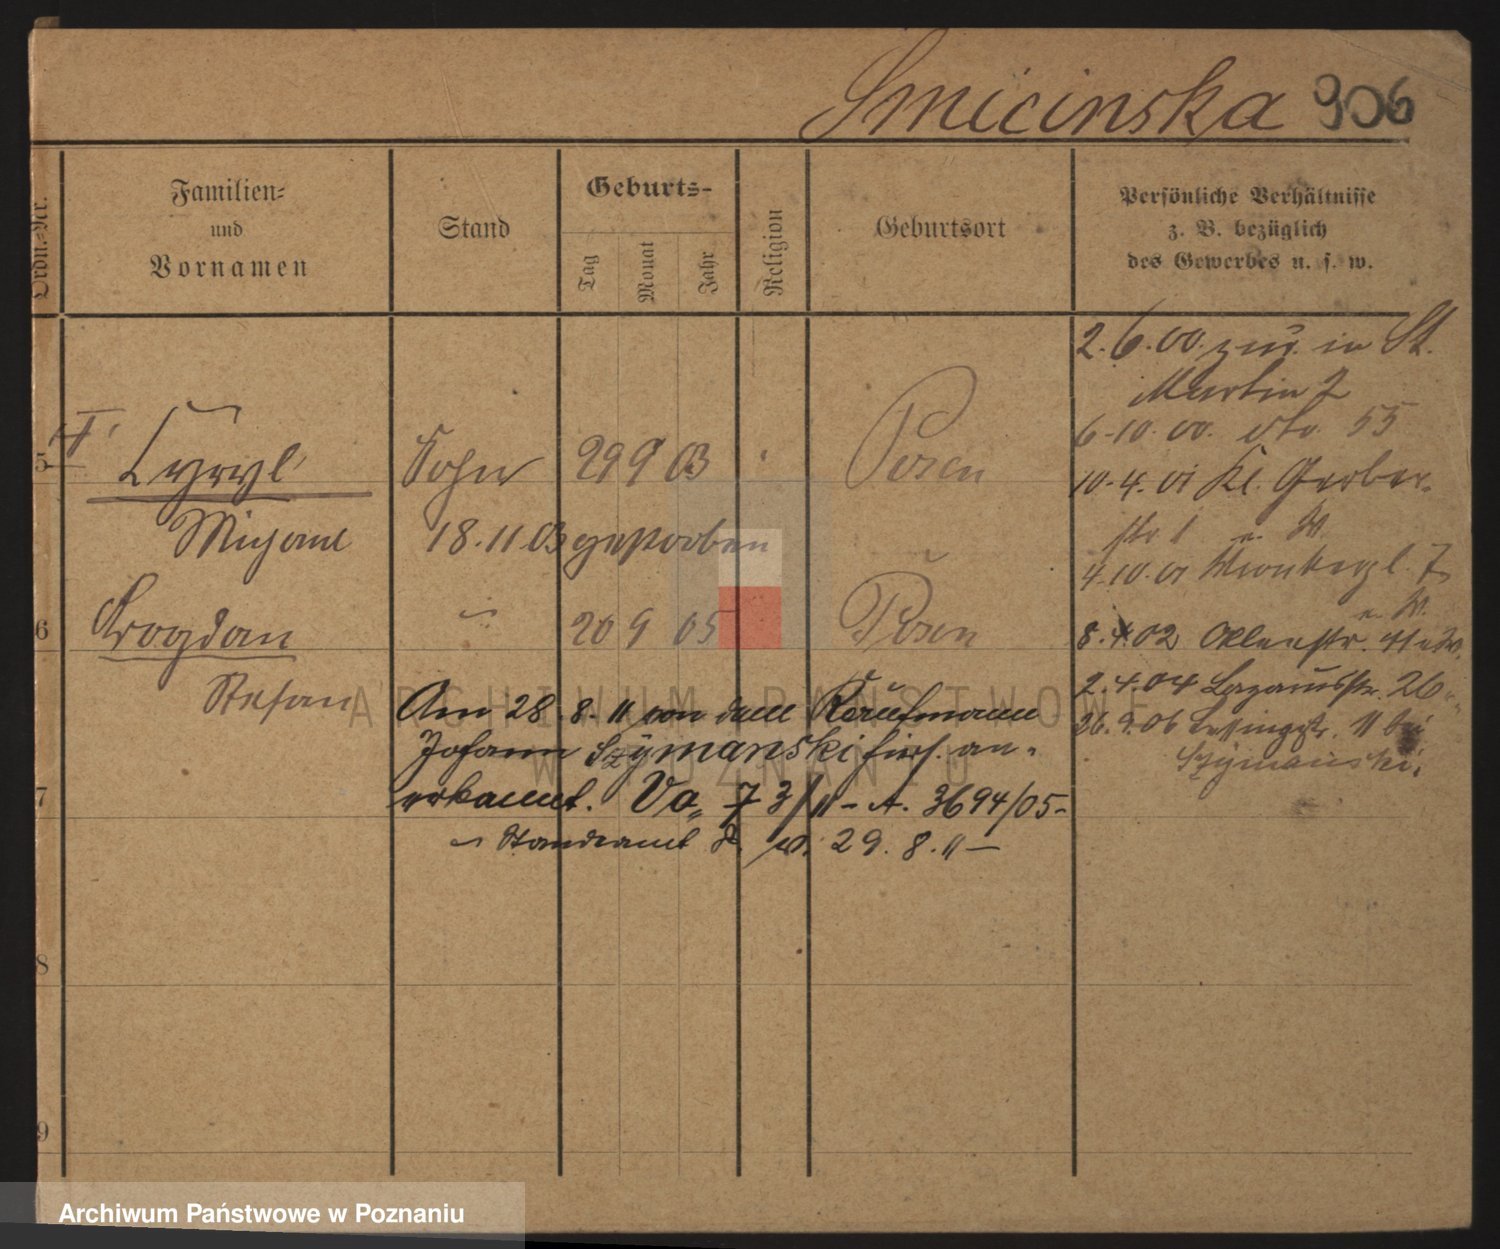 Smicinska 906
Ordn.-Nr.
Familien-
und
Vornamen
Stand
Geburts-
Tag
Monat
Jahr
Religion
Geburtsort
Persönliche Verhältnisse
z. B. bezüglich
des Gewerbes u. s. w.
2.6.00. zur. in St.
Martin 2
6-10.00. dto. 55
5 Cyryl Sohn 29 9 03 Posen
10.4.01 Kl. Gerber-
str 1 n. W.
Michael 18.11.03 gestorben
4.10.01 7
n. W.
6 Bogdan " 20 9 05 Posen
8.4.02
Stefan
2.4.04 Lazarusstr. 26
Am 28.8.11 von dem Kaufmann
26.9.06 Lessingstr. 11 bei
Johann Szymanski hies. an-
Szymanski.
7 erkannt. Va 73/11 - A. 3694/05-
Standesamt v. 29.8.11 —
8
9
ARCHIWUM PAŃSTWOWE
W POZNANIU
Archiwum Państwowe w Poznaniu